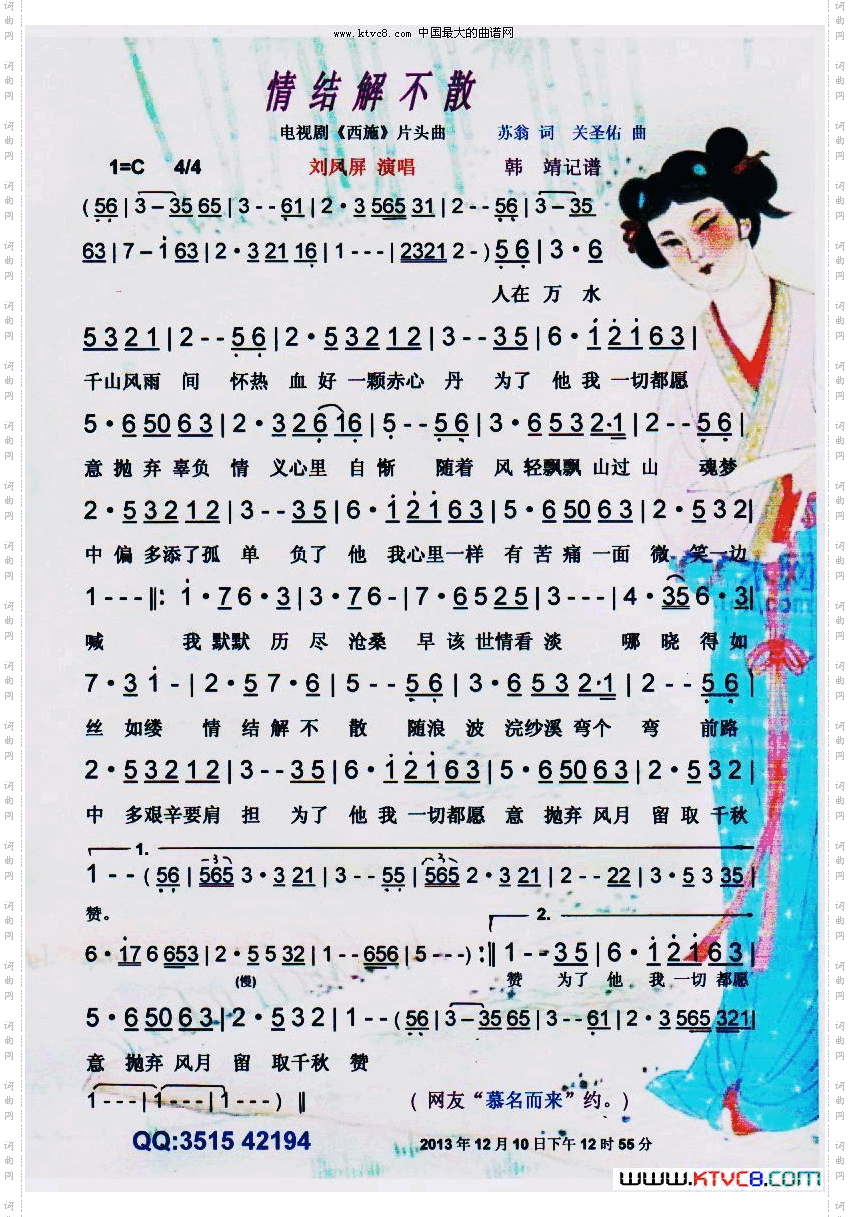 www.ktvc8.com 中国最大的曲谱网
情结解不散
电视剧《西施》片头曲 苏翁 词 关圣佑 曲
1=C 4/4 刘凤屏 演唱 韩 靖记谱
( 56 | 3 – 35 65 | 3 - - 61 | 2 · 3 565 31 | 2 - - 56 | 3 – 35
63 | 7 – i 63 | 2 · 3 21 16 | 1 - - - | 2321 2 - ) 5 6 | 3 · 6
人在 万 水
5 3 2 1 | 2 - - 5 6 | 2 · 5 3 2 1 2 | 3 - - 3 5 | 6 · i 2 i 6 3 |
千山风雨 间 怀热 血 好 一颗赤心 丹 为了 他 我 一切都愿
5 · 6 50 6 3 | 2 · 3 2 6 16 | 5 - - 5 6 | 3 · 6 5 3 2 2·1 | 2 - - 5 6 |
意 抛 弃 辜负 情 义心里 自 惭 随着 风 轻飘飘 山过 山 魂梦
2 · 5 3 2 1 2 | 3 - - 3 5 | 6 · i 2 i 6 3 | 5 · 6 50 6 3 | 2 · 5 3 2 |
中 偏 多添了孤 单 负了 他 我心里一样 有 苦 痛 一面 微 笑一边
1 - - - ‖: i · 7 6 · 3 | 3 · 7 6 - | 7 · 6 5 2 5 | 3 - - - | 4 · 35 6 · 3 |
喊 我 默默 历 尽 沧桑 早 该 世情看 淡 哪 晓 得 如
7 · 3 i - | 2 · 5 7 · 6 | 5 - - 5 6 | 3 · 6 5 3 2 2·1 | 2 - - 5 6 |
丝 如缕 情 结 解 不 散 随浪 波 浣纱溪 弯个 弯 前路
2 · 5 3 2 1 2 | 3 - - 3 5 | 6 · i 2 i 6 3 | 5 · 6 50 6 3 | 2 · 5 3 2 |
中 多艰辛要肩 担 为了 他 我 一切都愿 意 抛弃 风月 留 取 千秋
1.
1 - - ( 56 | 565 3 · 3 21 | 3 - - 55 | 565 2 · 3 21 | 2 - - 22 | 3 · 5 3 35 |
赞。
2.
6 · i7 6 653 | 2 · 5 5 32 | 1 - - 656 | 5 - - - ) :‖ 1 - - 3 5 | 6 · i 2 i 6 3 |
(慢) 赞 为了 他 我 一切 都愿
5 · 6 50 6 3 | 2 · 5 3 2 | 1 - - ( 56 | 3 – 35 65 | 3 - - 61 | 2 · 3 565 321 |
意 抛弃 风月 留 取千秋 赞
1 - - - | 1 - - - | 1 - - - ) ‖ ( 网友“慕名而来”约。)
QQ:3515 42194 2013 年 12 月 10 日下午 12 时 55 分
www.KTVC8.com